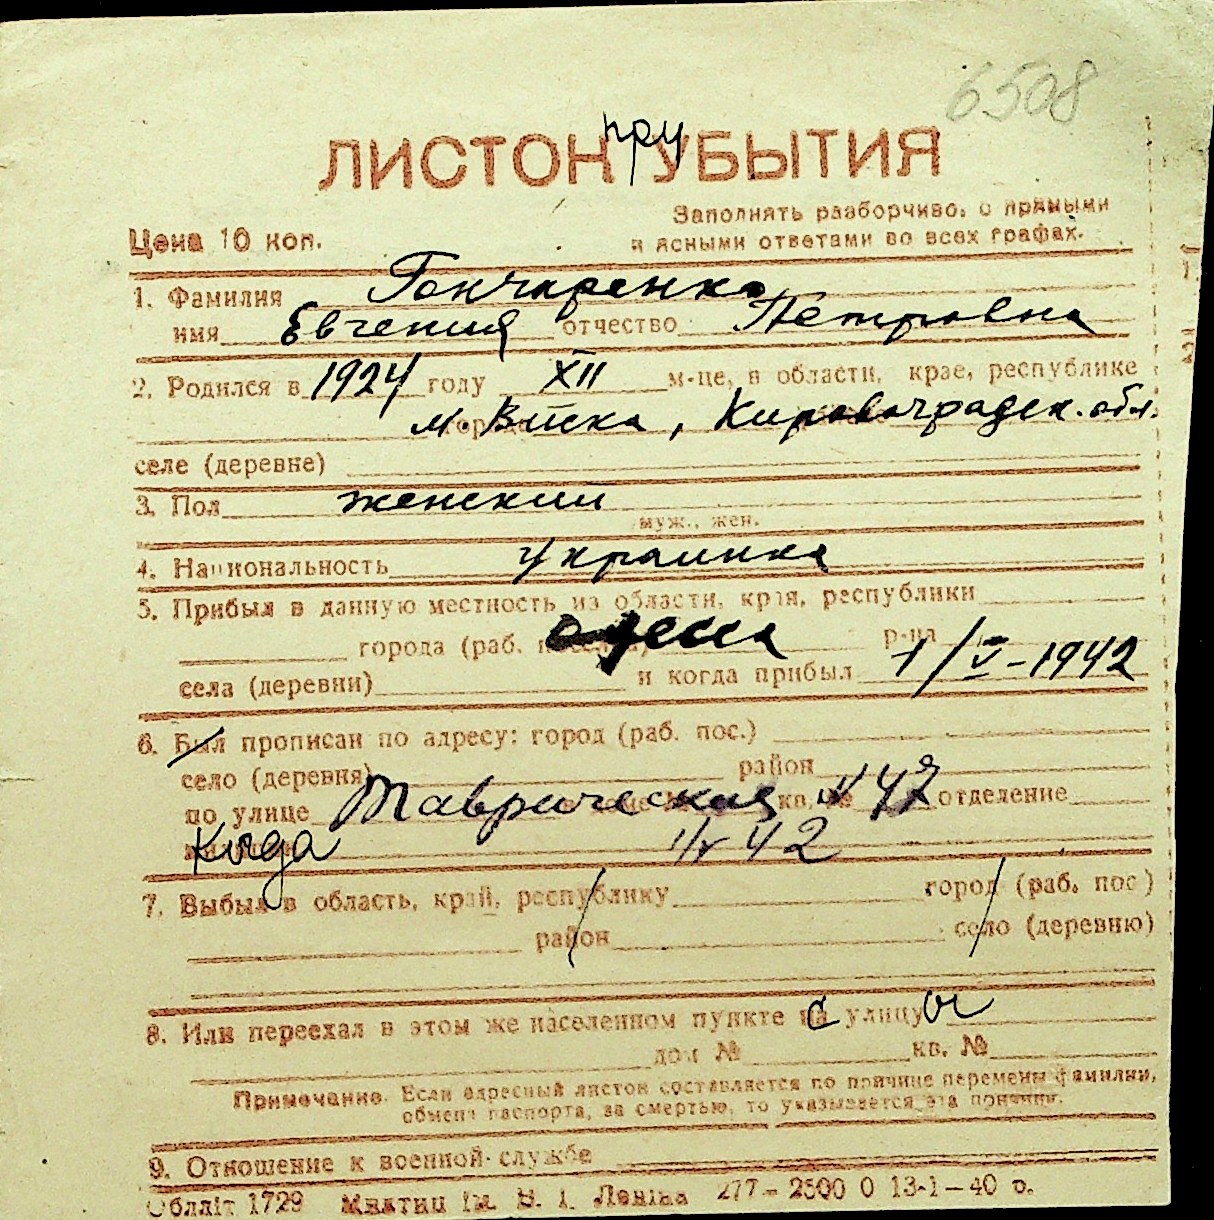 6508
при
ЛИСТОК УБЫТИЯ
Заполнять разборчиво, с прямыми
Цена 10 коп. и ясными ответами во всех графах.
1. Фамилия Гончаренко
имя Евгения отчество Петровна
2. Родился в 1924 году XII м-це, в области, крае, республике
м. Виска, Кировоградск. обл.
селе (деревне)
3. Пол женский
муж., жен.
4. Национальность украинка
5. Прибыл в данную местность из области, края, республики
города (раб. поселка) Одесса р-на
села (деревни) и когда прибыл 1/V-1942
6. Был прописан по адресу: город (раб. пос.)
село (деревня) район
по улице Таврическая кв. № 49 отделение
когда 1/V 42
7. Выбыл в область, край, республику город (раб. пос)
район село (деревню)
8. Или переехал в этом же населенном пункте с улицы
дом № кв. №
Примечание. Если адресный листок составляется по причине перемены фамилии,
обмена паспорта, за смертью, то указывается эта причина.
9. Отношение к военной службе
Обллiт 1729 iм. В. I. Ленiна 277–2500 0 13-1–40 р.